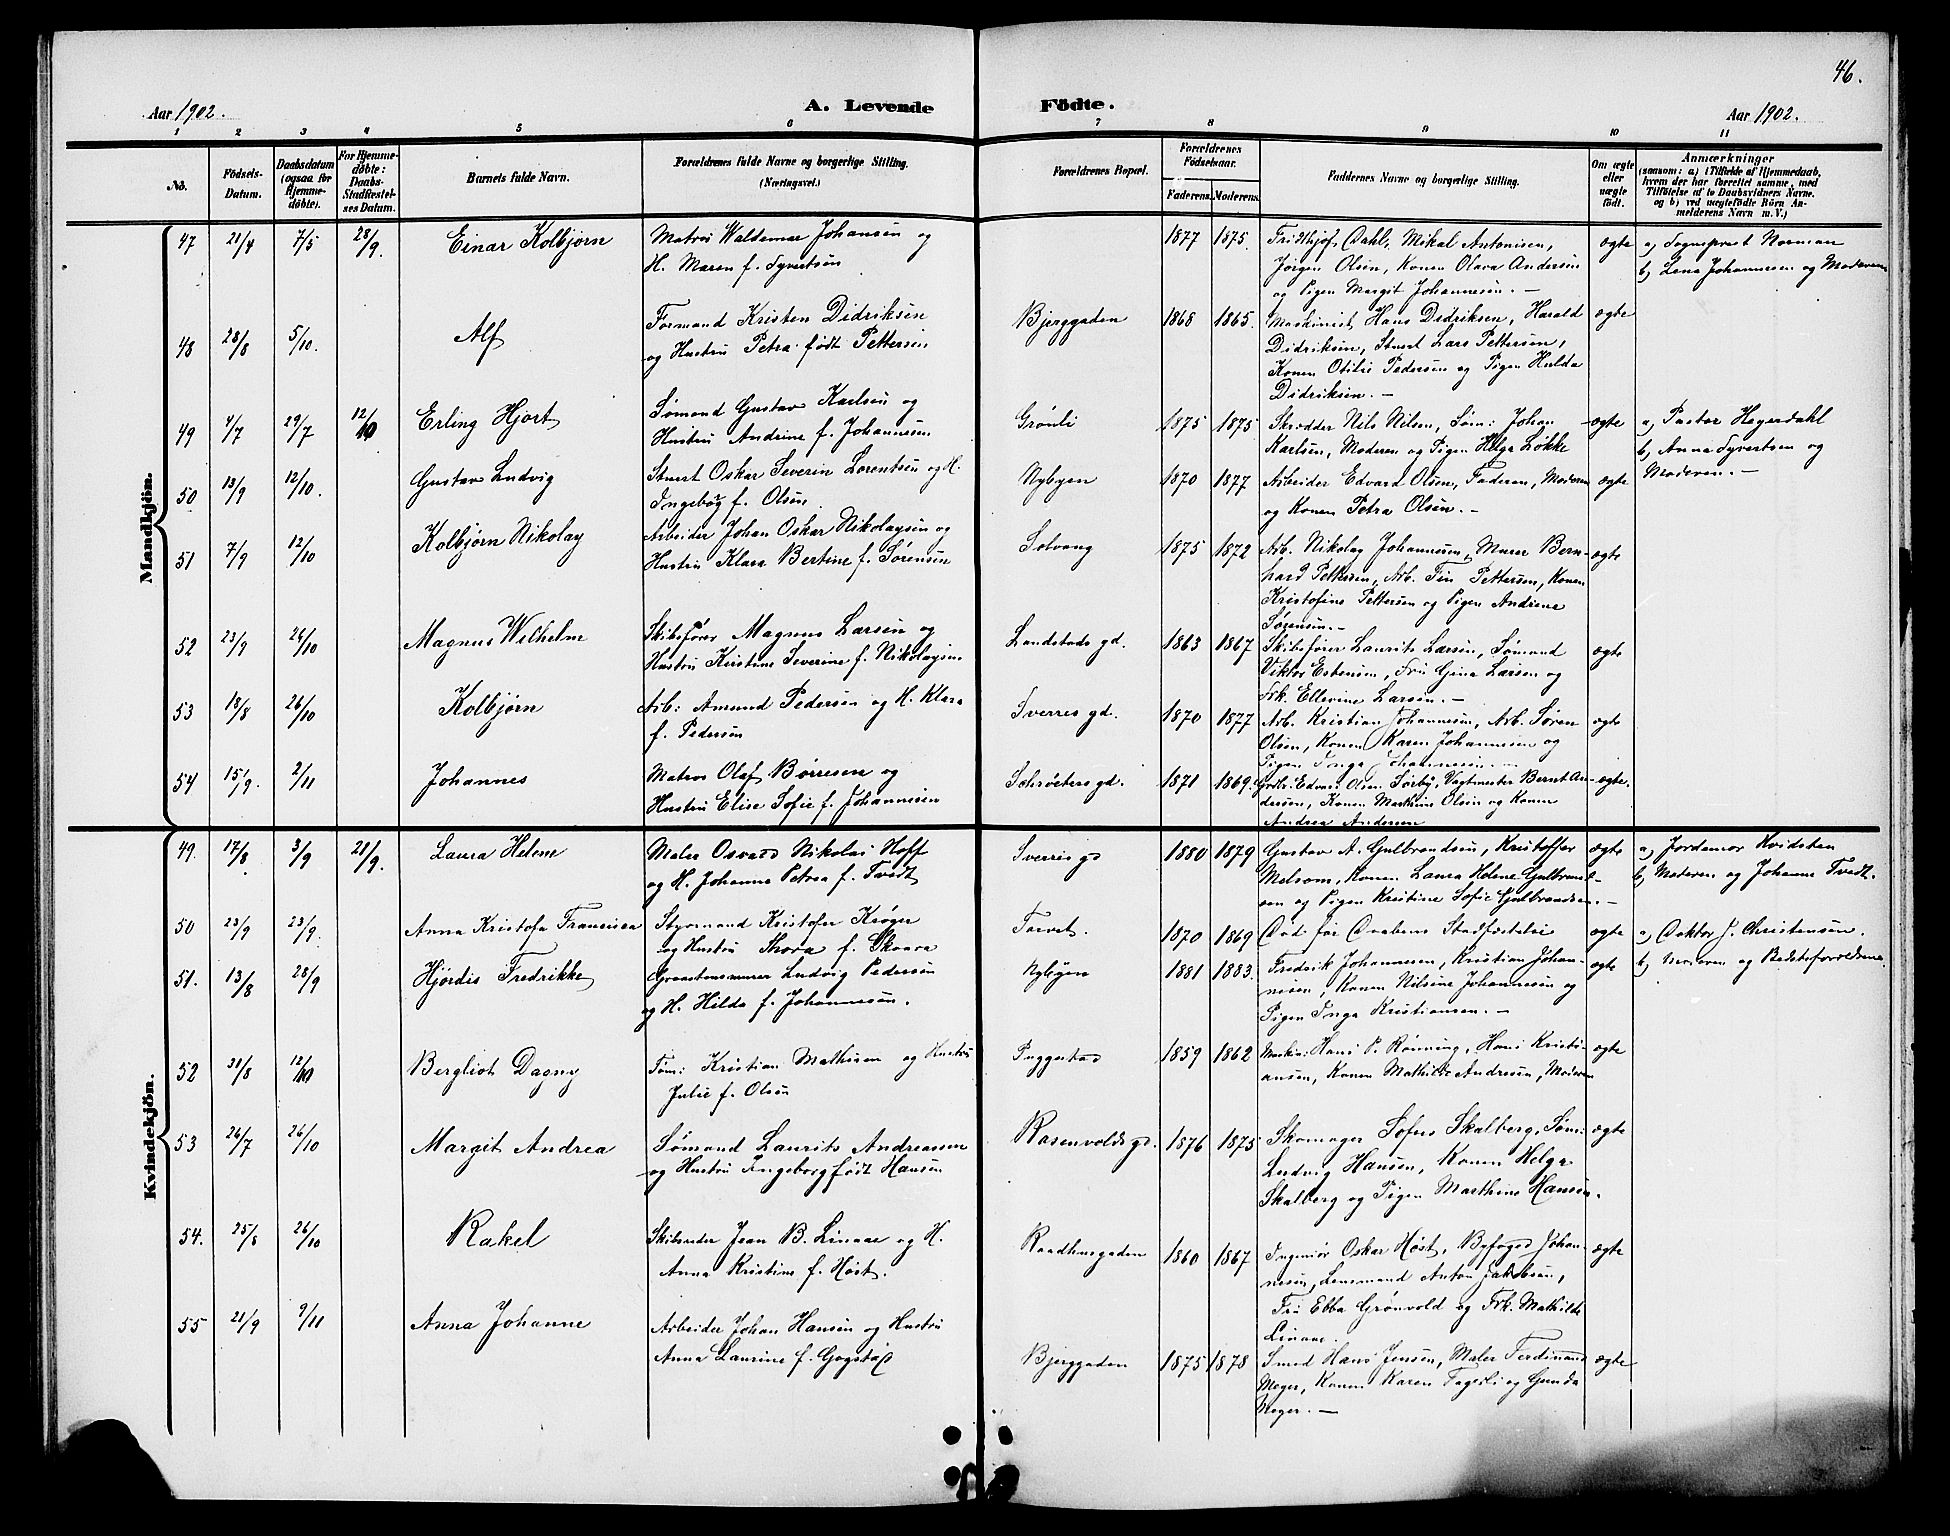 46.
Aar 1902.
A. Levende Födte.
Aar 1902.
1 2 3 4 5 6 7 8 9 10 11
No.
Födsels-Datum.
Daabsdatum (ogsaa for Hjemme-döbte).
For Hjemme-döbte: Daabs-Stadfæstel-ses Datum.
Barnets fulde Navn.
Forældrenes fulde Navne og borgerlige Stilling. (Næringsvei.)
Forældrenes Bopæl.
Forældrenes Födselsaar.
Faderens. Moderens.
Faddernes Navne og borgerlige Stilling.
Om ægte eller uægte födt.
Anmærkninger
(saasom: a) i Tilfælde af Hjemmedaab, hvem der har forrettet samme, med Tilföielse af to Daabsvidners Navne. og b) ved uægtefödte Börn An-melderens Navn m. V.)
Mandkjön.
47 21/4 7/5 28/9. Einar Kolbjørn
Matros Waldemar Johansen og
H. Maren f. Syvertsen
1877 1875.
Fridthjof Dahl, Mikal Antonisen,
Jørgen Olsen, Konen Olava Andersen
og Pigen Margit Johannesen. —
ægte
a) Sogneprest Norman
b) Lena Johannesen og Moderen
48 28/8 5/10. Alf
Formand Kristen Didriksen
og Hustru Petra født Pettersen
Bjerggaden 1868 1865.
Maskinist Hans Didriksen, Harald
Didriksen, Stuert Lars Pettersen,
Konen Otilie Pedersen og Pigen Hulda
Didriksen. —
ægte
49 4/7 29/7 12/10 Erling Hjort
Sømand Gustav Karlsen og
Hustru Andrine f. Johannesen
Grønli 1875 1875
Skrædder Nils Nilsen, Søm: Johan
Karlsen, Moderen og Pigen Helga Løkke
ægte
a) Pastor Heyerdahl
b) Anna Syvertsen og
Moderen. —
50 13/9 12/10. Gustav Ludvig
Stuert Oskar Severin Lorentsen og H.
Ingebøg f. Olsen.
Nybyen 1870 1877
Arbeider Edvard Olsen, Faderen, Moderen
og Konen Petra Olsen. —
ægte
51 7/9 12/10 Kolbjørn Nikolay
Arbeider Johan Oskar Nikolaysen og
Hustru Klara Bertine f. Sørensen
Solvang 1875 1872
Arb. Nikolay Johannesen, Murer Bern-
hard Pettersen, Arb. Pettersen, Konen
Kristofine Pettersen og Pigen Andrine
Sørensen. —
ægte
52 23/9 26/10 Magnus Wilhelm
Skibsfører Magnus Larsen og
Hustru Kristine Severine f. Nikolaysen
Landstads gd. 1863 1867
Skibsfører Laurits Larsen, Sømand
Viktor Esbensen, Fru Gina Larsen og
Frk. Ellevine Larsen. —
ægte
53 18/8 26/10 Kolbjørn
Arb: Amund Pedersen og H. Klara
f. Pedersen
Sverres gd. 1870 1877
Arb. Kristian Johannesen, Arb. Søren
Olsen, Konen Karen Johannesen og
Pigen Inga Johannesen. —
ægte
54 15/9. 2/11 Johannes
Matros Olaf Børresen og
Hustru Elise Sofie f. Johannesen
Schrøeters gd. 1871 1869.
Edvard Olsen Sørby, Vagtmester Bernt An-
dersen, Konen Mathine Olsen og Konen
Andrea Andersen
ægte.
Kvindekjön.
49. 17/8. 3/9 21/9. Laura Helene
Maler Osvald Nikolai Hoff
og H. Johanne Petrea f. Tvedt
Sverris gd 1880 1879
Gustav A. Gulbrandsen, Kristoffer
Melsom, Konen Laura Helene Gulbrand-
sen og Pigen Kristine Sofie Gulbrandsen. —
ægte
a) Jordemor Kvidsten
b) Moderen og Johanne Tvedt.
50 23/9 23/9. Anna Kristofa Fransisca
Styrmand Kristofer Krøger
og Hustru Thora f. Skaara
Torvet. 1870 1869
Død før Daabens Stadfæstelse
ægte
a) Doktor J. Christensen.
b) Moderen og Bedsteforældrene.
51. 13/8 28/9 Hjørdis Fredrikke
Ludvig Pedersen
og H. Hilda f. Johannesen.
Nybyen 1881 1883.
Fredrik Johannesen, Kristian Johan-
nesen, Konen Nilsine Johannesen og
Pigen Inga Kristiansen. —
ægte
52 31/8 12/10 Bergliot Dagny
Tøm: Kristian Mathisen og Hustru
Julie f. Olsen
Puggestad 1859 1862
Maskin: Hans P. Rønning, Hans Kristi-
ansen, Konen Mathilde Andresen, Moderen
ægte
53 26/7 26/10 Margit Andrea
Sømand Laurits Andreassen
og Hustru Ingeborg født Hansen
Rosenvolds gd. 1876 1875
Skomager Sofus Skalberg, Søm:
Ludvig Hansen, Konen Helga
Skalberg og Pigen Marthine Hansen.
ægte
54. 25/8 26/10 Rakel
Skibsreder Jean B. Linaae og H.
Anna Kristine f. Høst.
Raadhusgaden 1860 1867
Ingeniør Oskar Høst, Byfoged Johan-
nesen, Lensmand Anton Jakobsen,
Fru Ebba Grønvold og Frk. Mathilde
Linaae.
ægte
55 21/9 9/11 Anna Johanne
Arbeider Johan Hansen og Hustru
Anna Laurine f. Gogstad
Bjerggaden 1875 1878
Smed Hans Jensen, Maler Ferdinand
Meyer, Konen Karen Fagerli og Gunda
Meyer. —
ægte